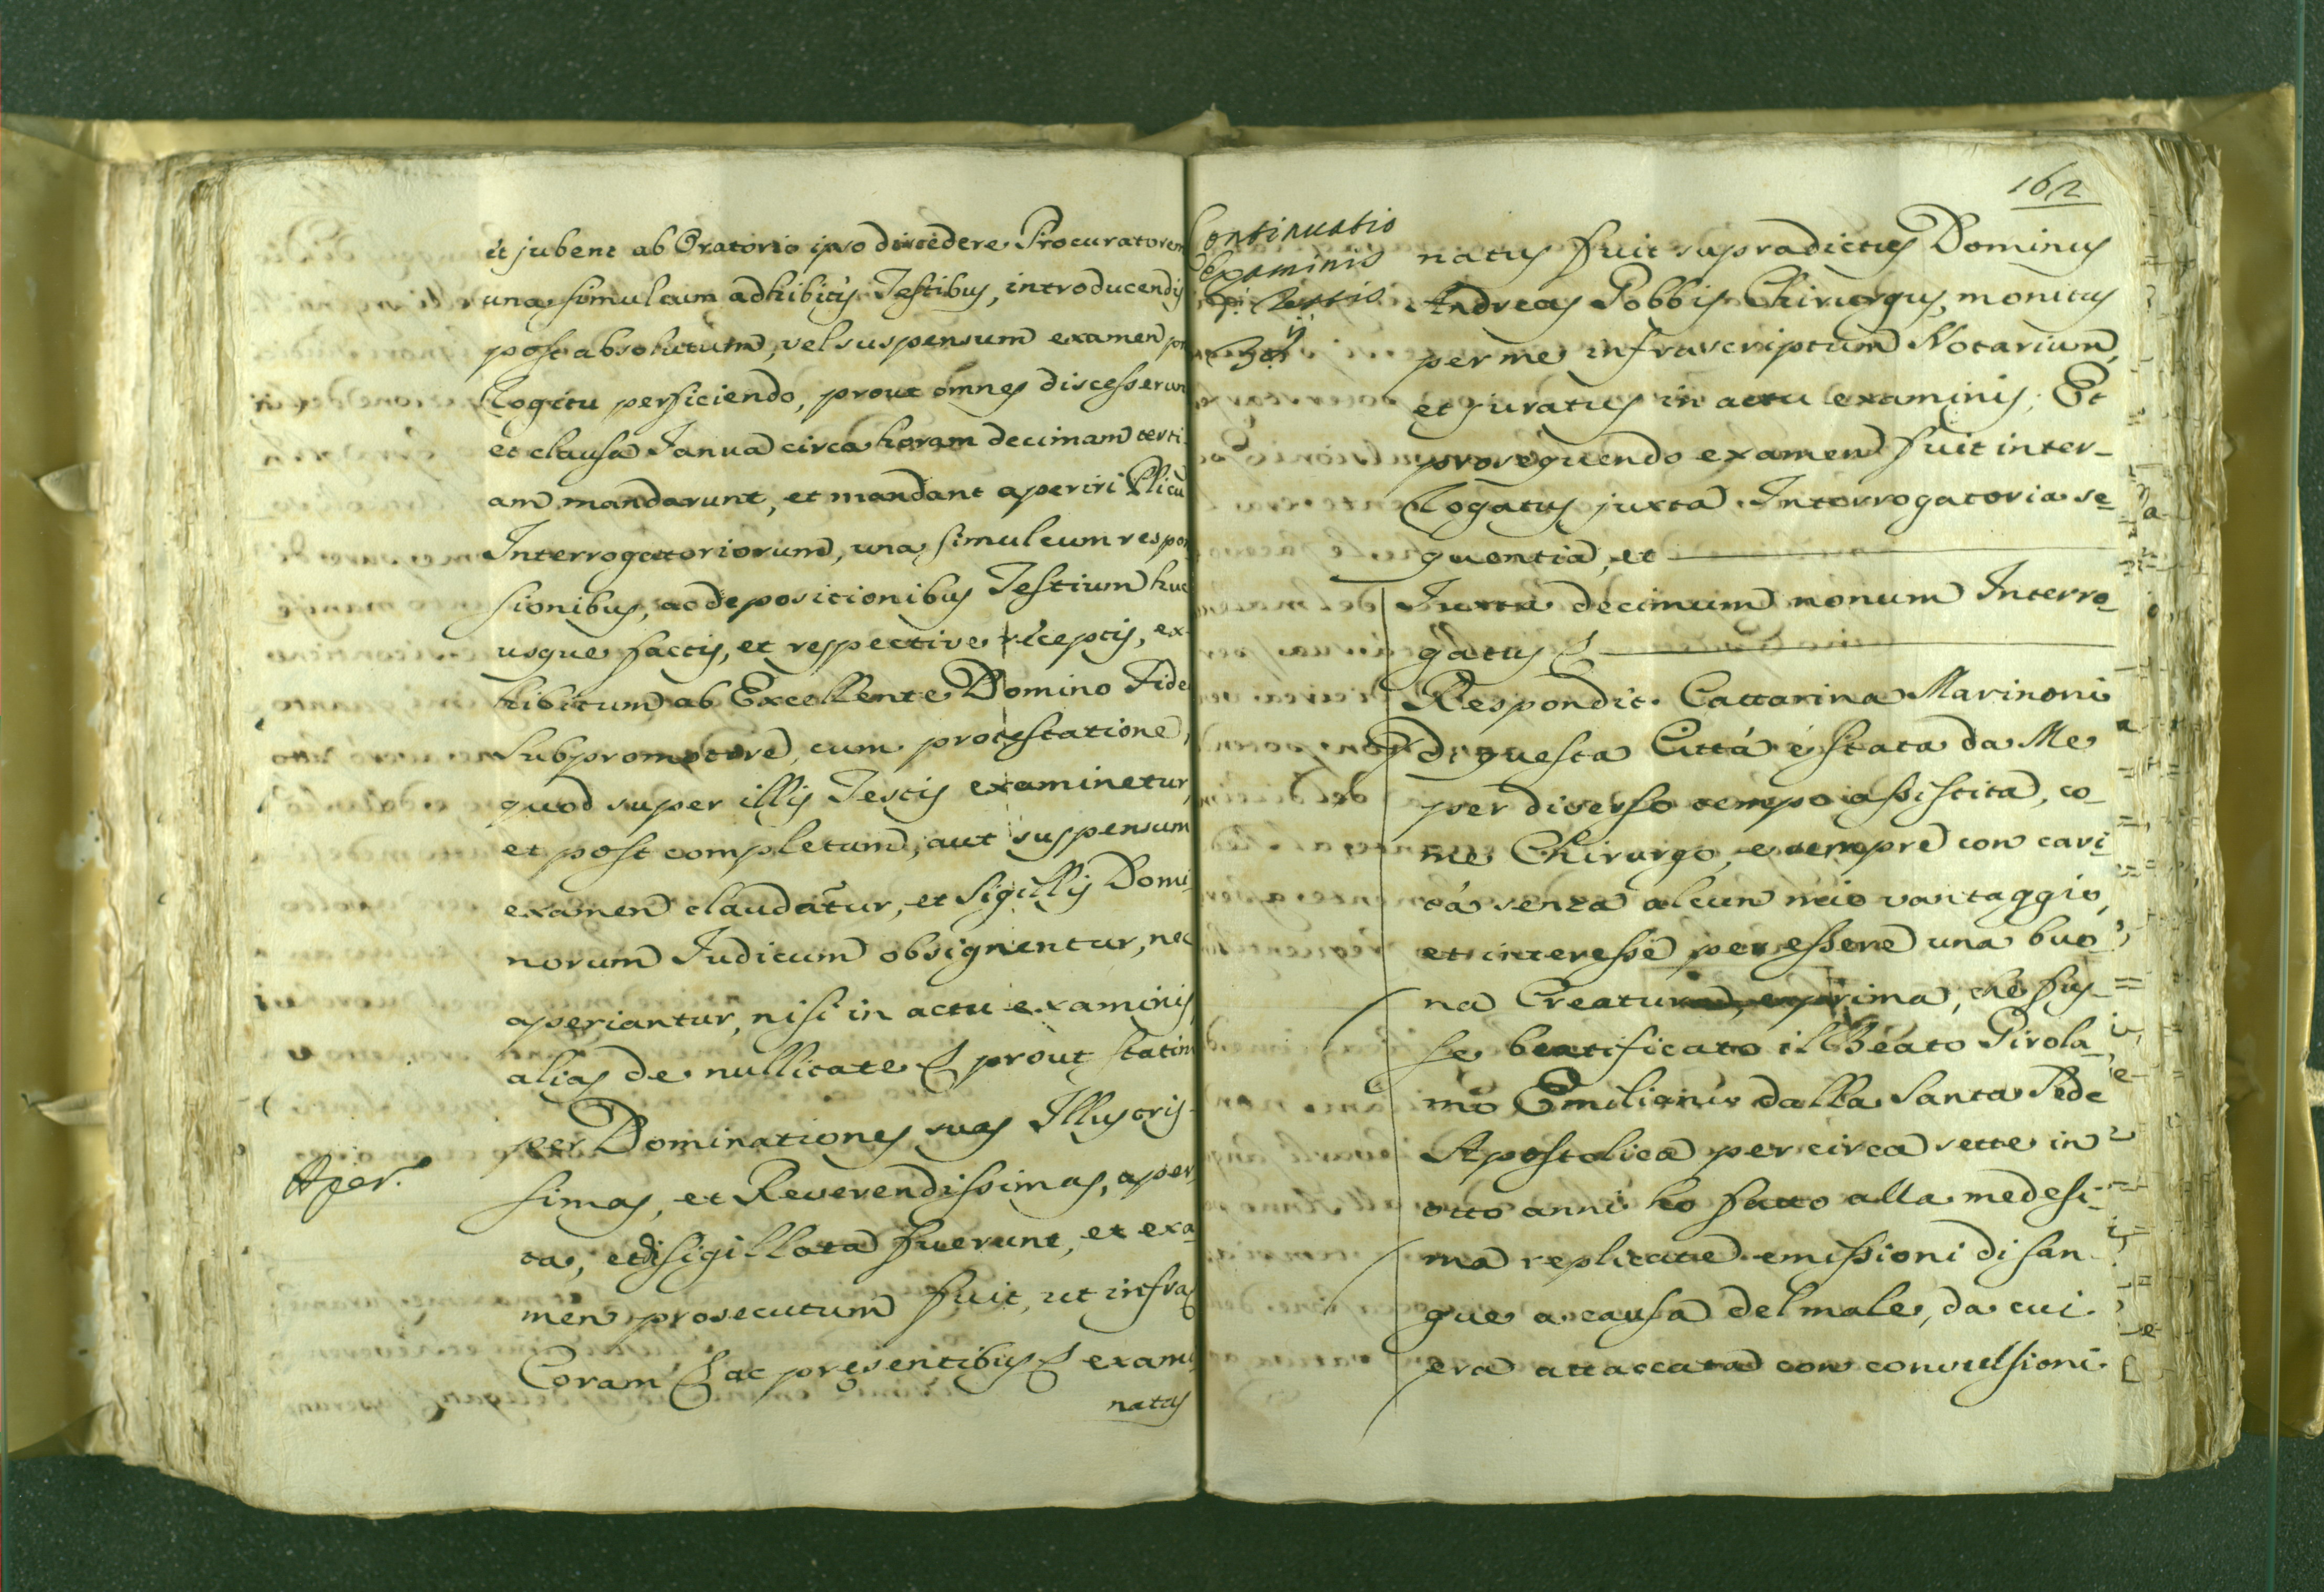 et jubent ab Oratorio ipso discedere Procuratorem
una simul cum adhibitis Testibus, introducendis
post absolutum, vel suspensum examen pro
Rogitu perficiendo, prout omnes discesserunt
et clausa Janua circa horam decimam terti
am mandarunt, et mandant aperiri Plicu
Interrogatoriorum, una simul cum respon
sionibus, ac depositionibus Testium huc
usque factis, et respective receptis, ex
hibitum ab Excellente Domino Fide
Subpromotore, cum protestatione,
quod super illis Testis examinetur,
et post completum, aut suspensum
examen claudatur, et Sigillis Domi
norum Judicum obsignentur, nec
aperiantur, nisi in actu examinis
alias de nullitate & prout statim
per Dominationes suas Illustris
Aper.
simas, et Reverendissimas, aper
ta, et disigillata fuerunt, et exa
men prosecutum fuit, ut infra
Coram & ac presentibus & exami
natus
162
Continuatio
Examinis
natus fuit supradictus Dominus
Andreas Pobbis Chirurgus, monitus
per me infrascriptum Notarium,
et juratus in actu examinis; Et
prosequendo examen fuit inter-
rogatus juxta Interrogatoria se
quentia, et
Juxta decimum nonum Interro
gatus &
Respondit. Cattarina Marinoni
di questa Città è stata da Me
per diverso tempo assistita, co
me Chirurgo, e sempre con cari
tà senza alcun mio vantaggio,
et interesse per essere una buo
na Creatura, e prima, che fus
se beatificato il Beato Girola
mo Emiliani dalla Santa Sede
Apostolica per circa sette in
otto anni ho fatto alla medesi-
ma replicate emissioni di san
gue a causa del male, da cui
era attaccata con convulsioni